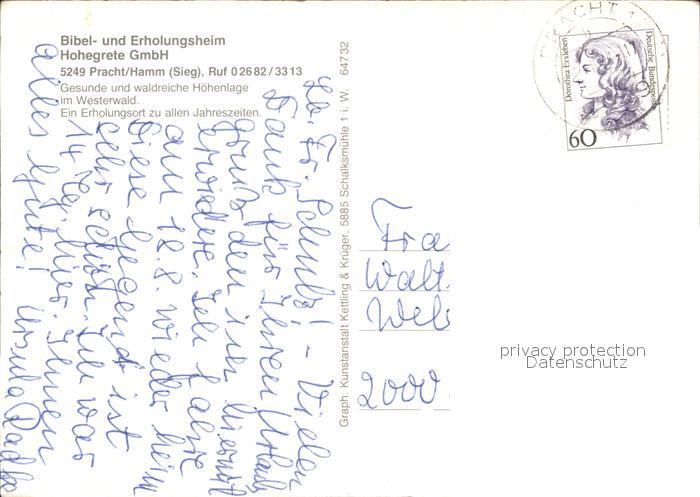 Bibel- und Erholungsheim
Hohegrete GmbH
5249 Pracht/Hamm (Sieg), Ruf 0 26 82 / 33 13
Gesunde und waldreiche Höhenlage
im Westerwald.
Ein Erholungsort zu allen Jahreszeiten.
Lb. Fr. – Vielen
Dank für Ihren Urlaub
gruß den ich hiermit
erwidere. Ich fahre
am 18.8. wieder heim
Diese Gegend ist
sehr schön. Ich war
14 Tg. hier. Ihnen
alles Gute! Ursula
Graph. Kunstanstalt Kettling & Krüger, 5885 Schalksmühle 1 i. W. 64732
Dorothea Erxleben
Deutsche Bundespost
60
PRACHT
Fra
Walt.
Web
2000
privacy protection
Datenschutz